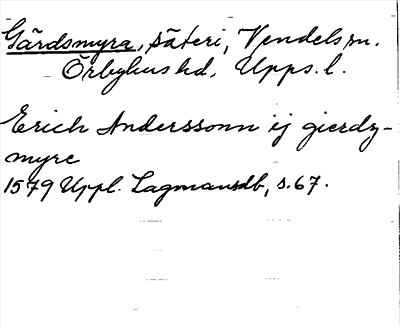 Gårdsmyra, säteri, Vendels sn.
Örbyhus hd, Upps. l.
Erich Anderssonn ij gierdz-
myre
1579 Uppl. Lagmansdb, s. 67.